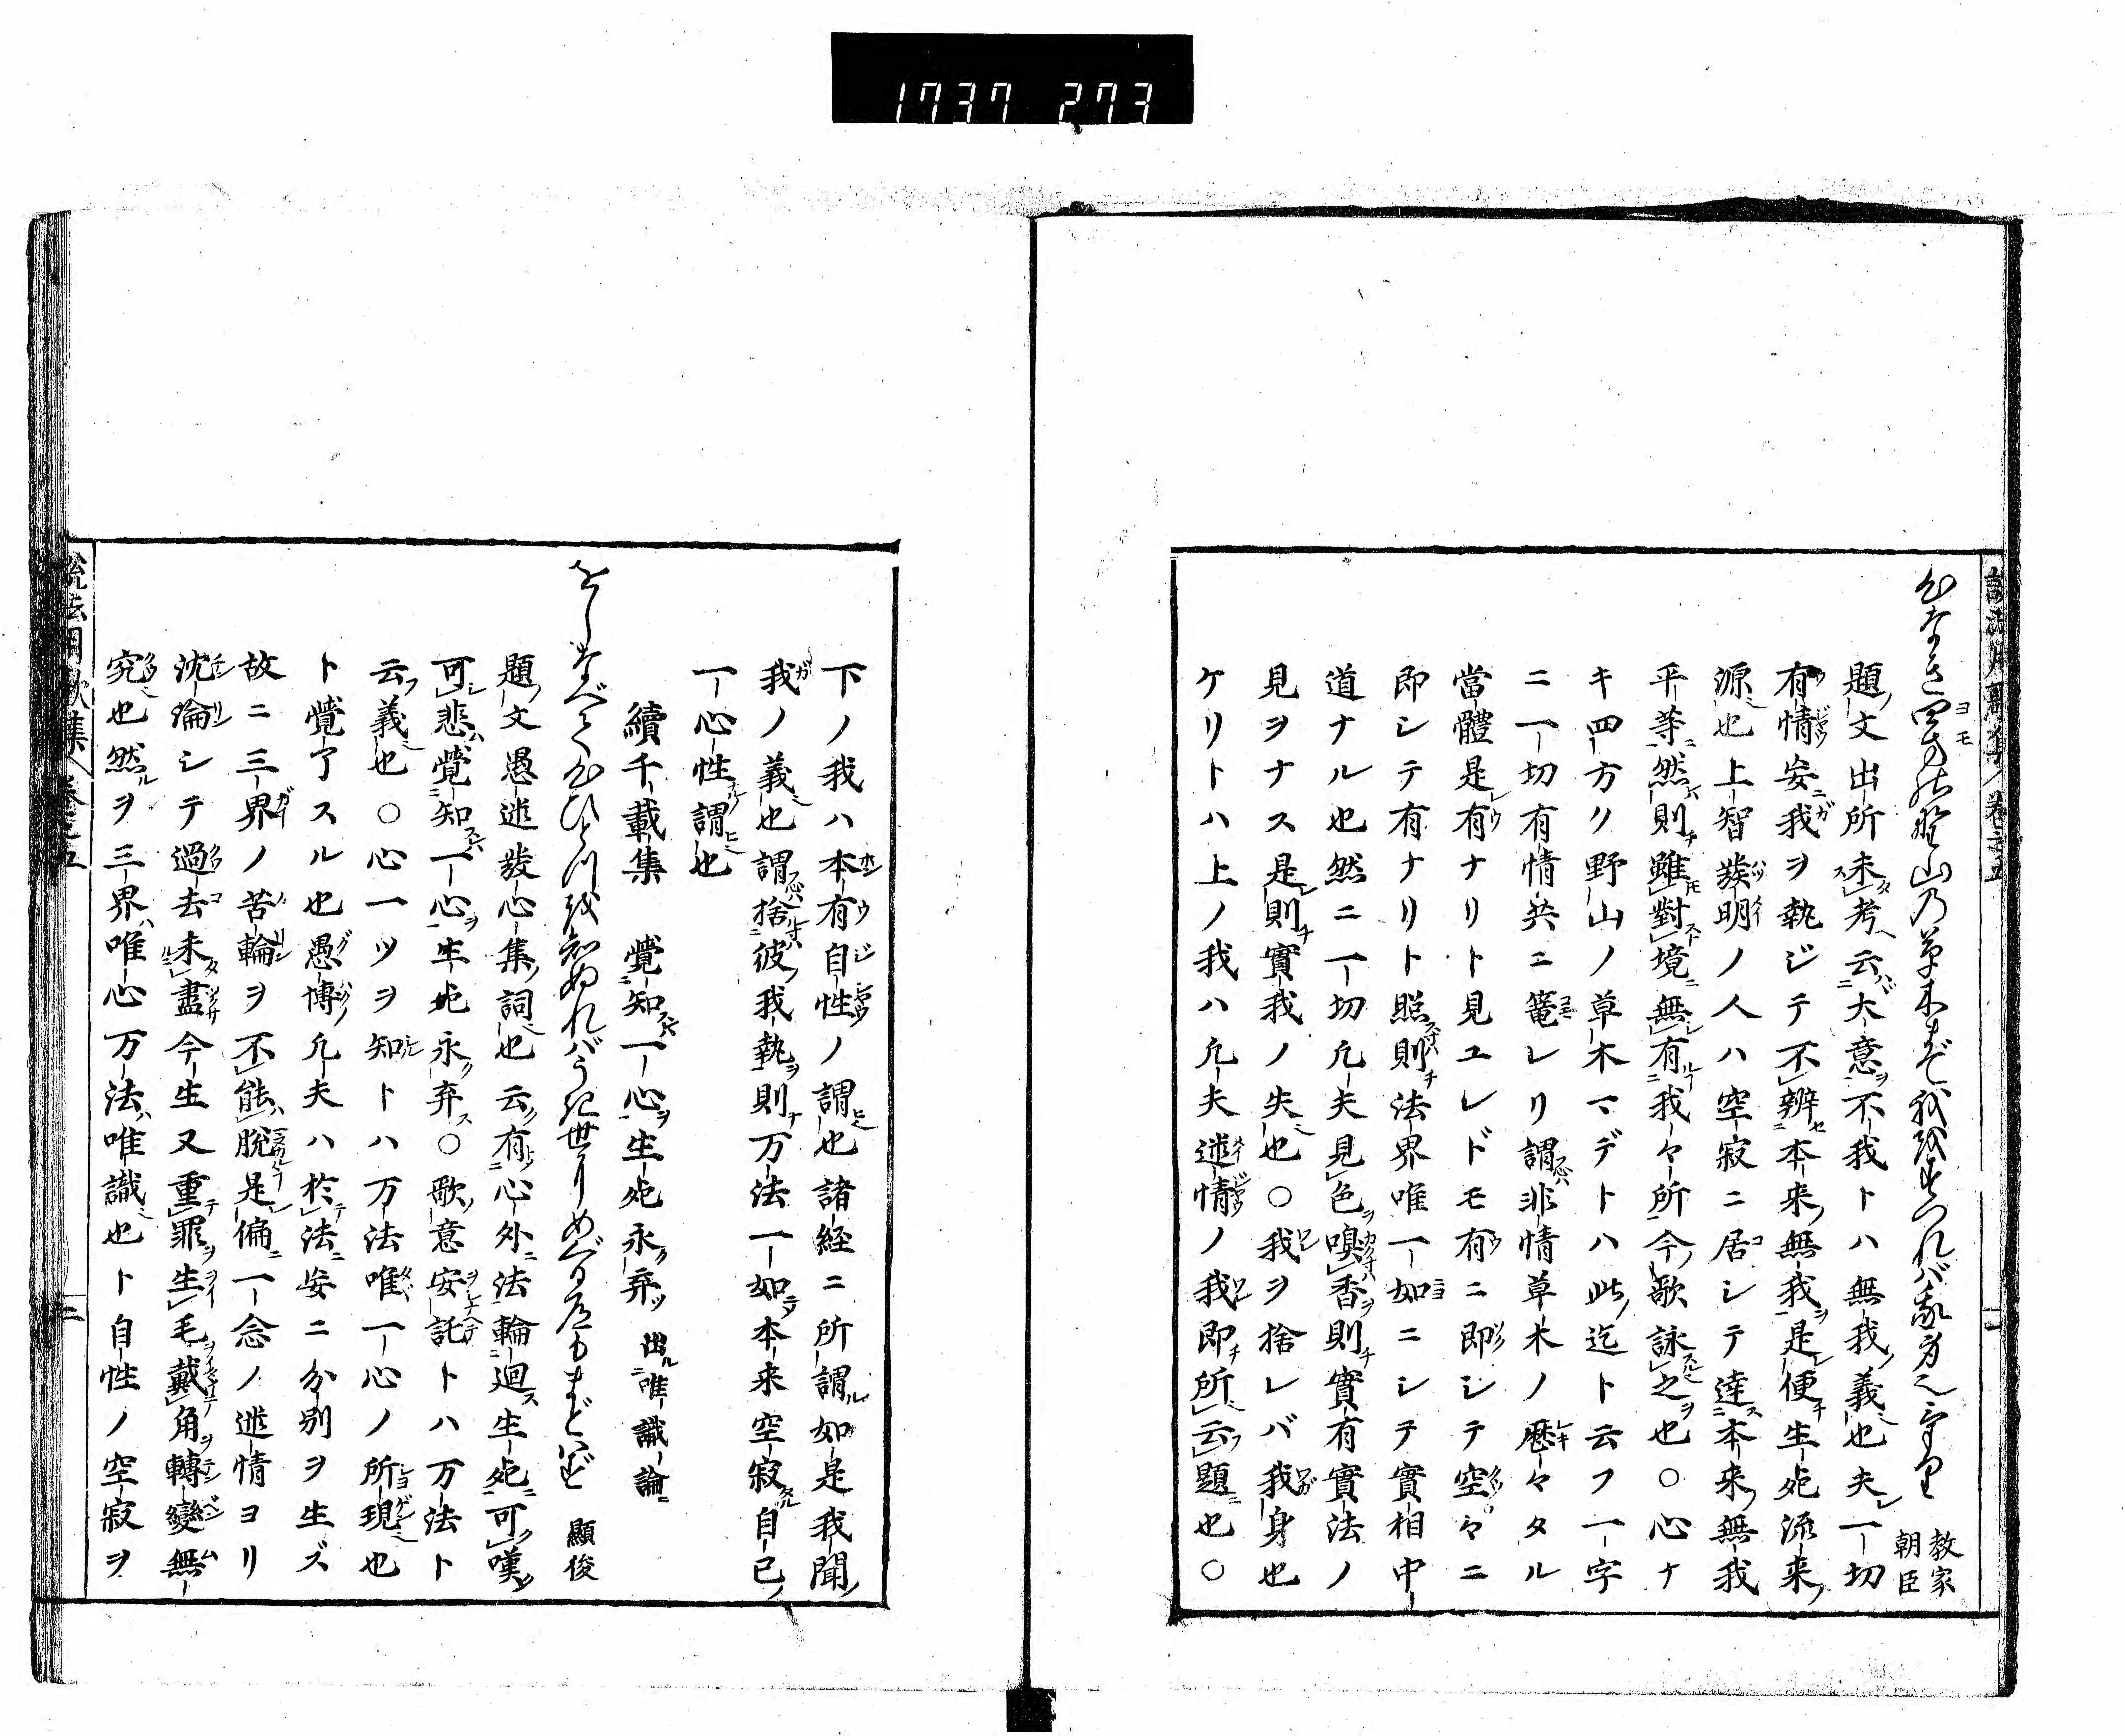 1737 273
心なき四方の野山の草木まで我をすつれば我身也けり
教家
朝臣
題ノ文出所未考云大意不我トハ無我ノ義也夫一切
有情妄ニ我ヲ執ジテ不辨本来無我是便生死流来ノ
源也上智發明ノ人ハ空寂ニ居シテ達本来無我
平等然則雖對境無有我々所今歌詠之也〇心ナ
キ四方ク野山ノ草木マデトハ此迄ト云フ一字
ニ一切有情共ニ篭レリ謂非情草木ノ歴々タル
當體是有ナリト見ユレドモ有ニ即シテ空ヤニ
即シテ有ナリト照則法界唯一如ニシテ實相中
道ナル也然ニ一切凢夫見色嗅香則實有實法ノ
見ヲナス是則實我ノ失也〇我ヲ捨レバ我身也
ケリトハ上ノ我ハ凢夫迷情ノ我即所云題也〇
下ノ我ハ本有自性ノ謂也諸経ニ所謂如是我聞
我ノ義也謂捨彼我執則万法一如本来空寂自己
一心性謂也
續千載集 覺知一心生死永弃 出唯識論
をしなべて心ひとつを知ぬればうき世にめぐる道もまどはず 顯俊
題文愚迷發心集詞也云有心外法輪迴生死可嘆
可悲覺知一心生死永弃〇歌意安託トハ万法ト
云義也〇心一ツヲ知トハ万法唯一心ノ所現也
ト覺了スル也愚博凢夫ハ於法妄ニ分別ヲ生ズ
故ニ三界ノ苦輪ヲ不能脱是偏一念ノ迷情ヨリ
沈淪シテ過去未盡今生又重罪生毛戴角轉變無
究也然ヲ三界唯心万法唯識也ト自性ノ空寂ヲ
説法用歌集 卷之五 二